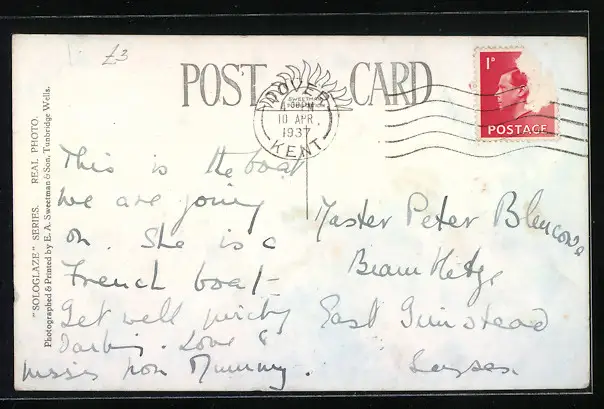 £3
POST CARD
SWEETMAN
DOVER
10 APR
1937
KENT
1D
POSTAGE
"SOLOGLAZE" SERIES. REAL PHOTO.
Photographed & Printed by E. A. Sweetman & Son, Tunbridge Wells.
This is the boat
we are going
on. She is a
French boat -
Get well quickly
Darling. Love &
kisses from Mummy.
Master Peter Blencowe
East Grinstead
Sussex